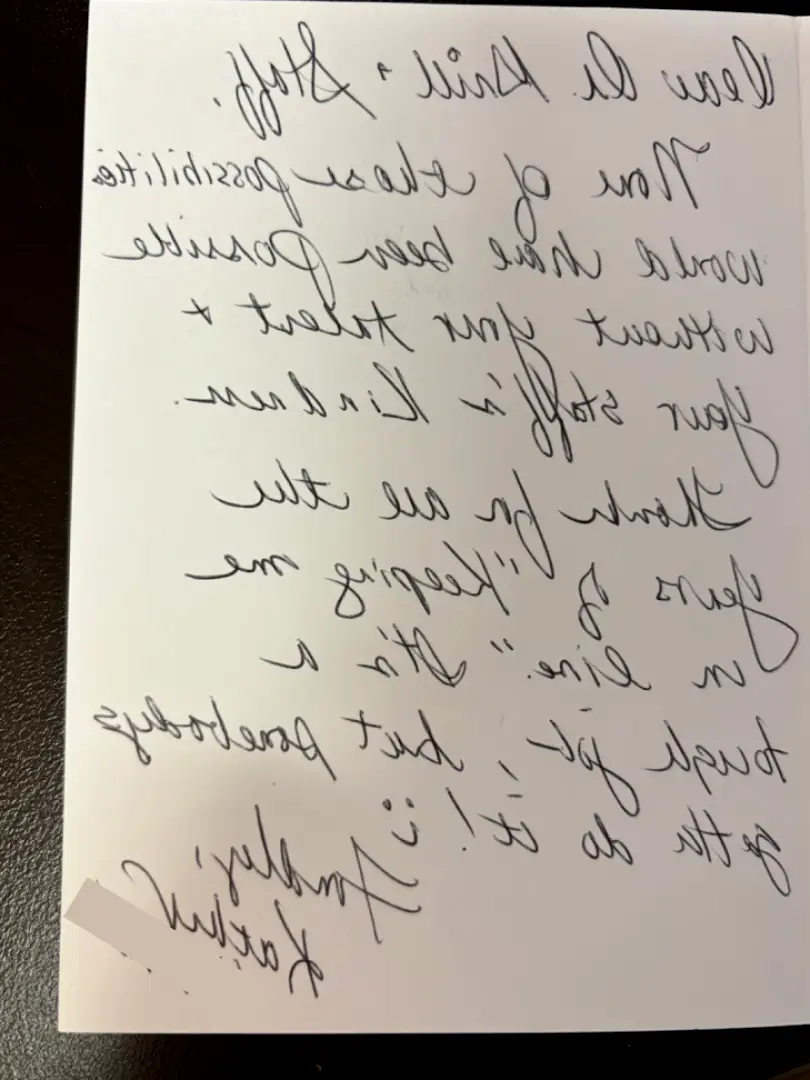 Dear Dr. Krill + Staff,
None of these possibilities
would have been possible
without your talent +
your staff's kindness.
Thanks for all the
years of "keeping me
in line." It's a
tough job, but somebodys
gotta do it! :)
Fondly,